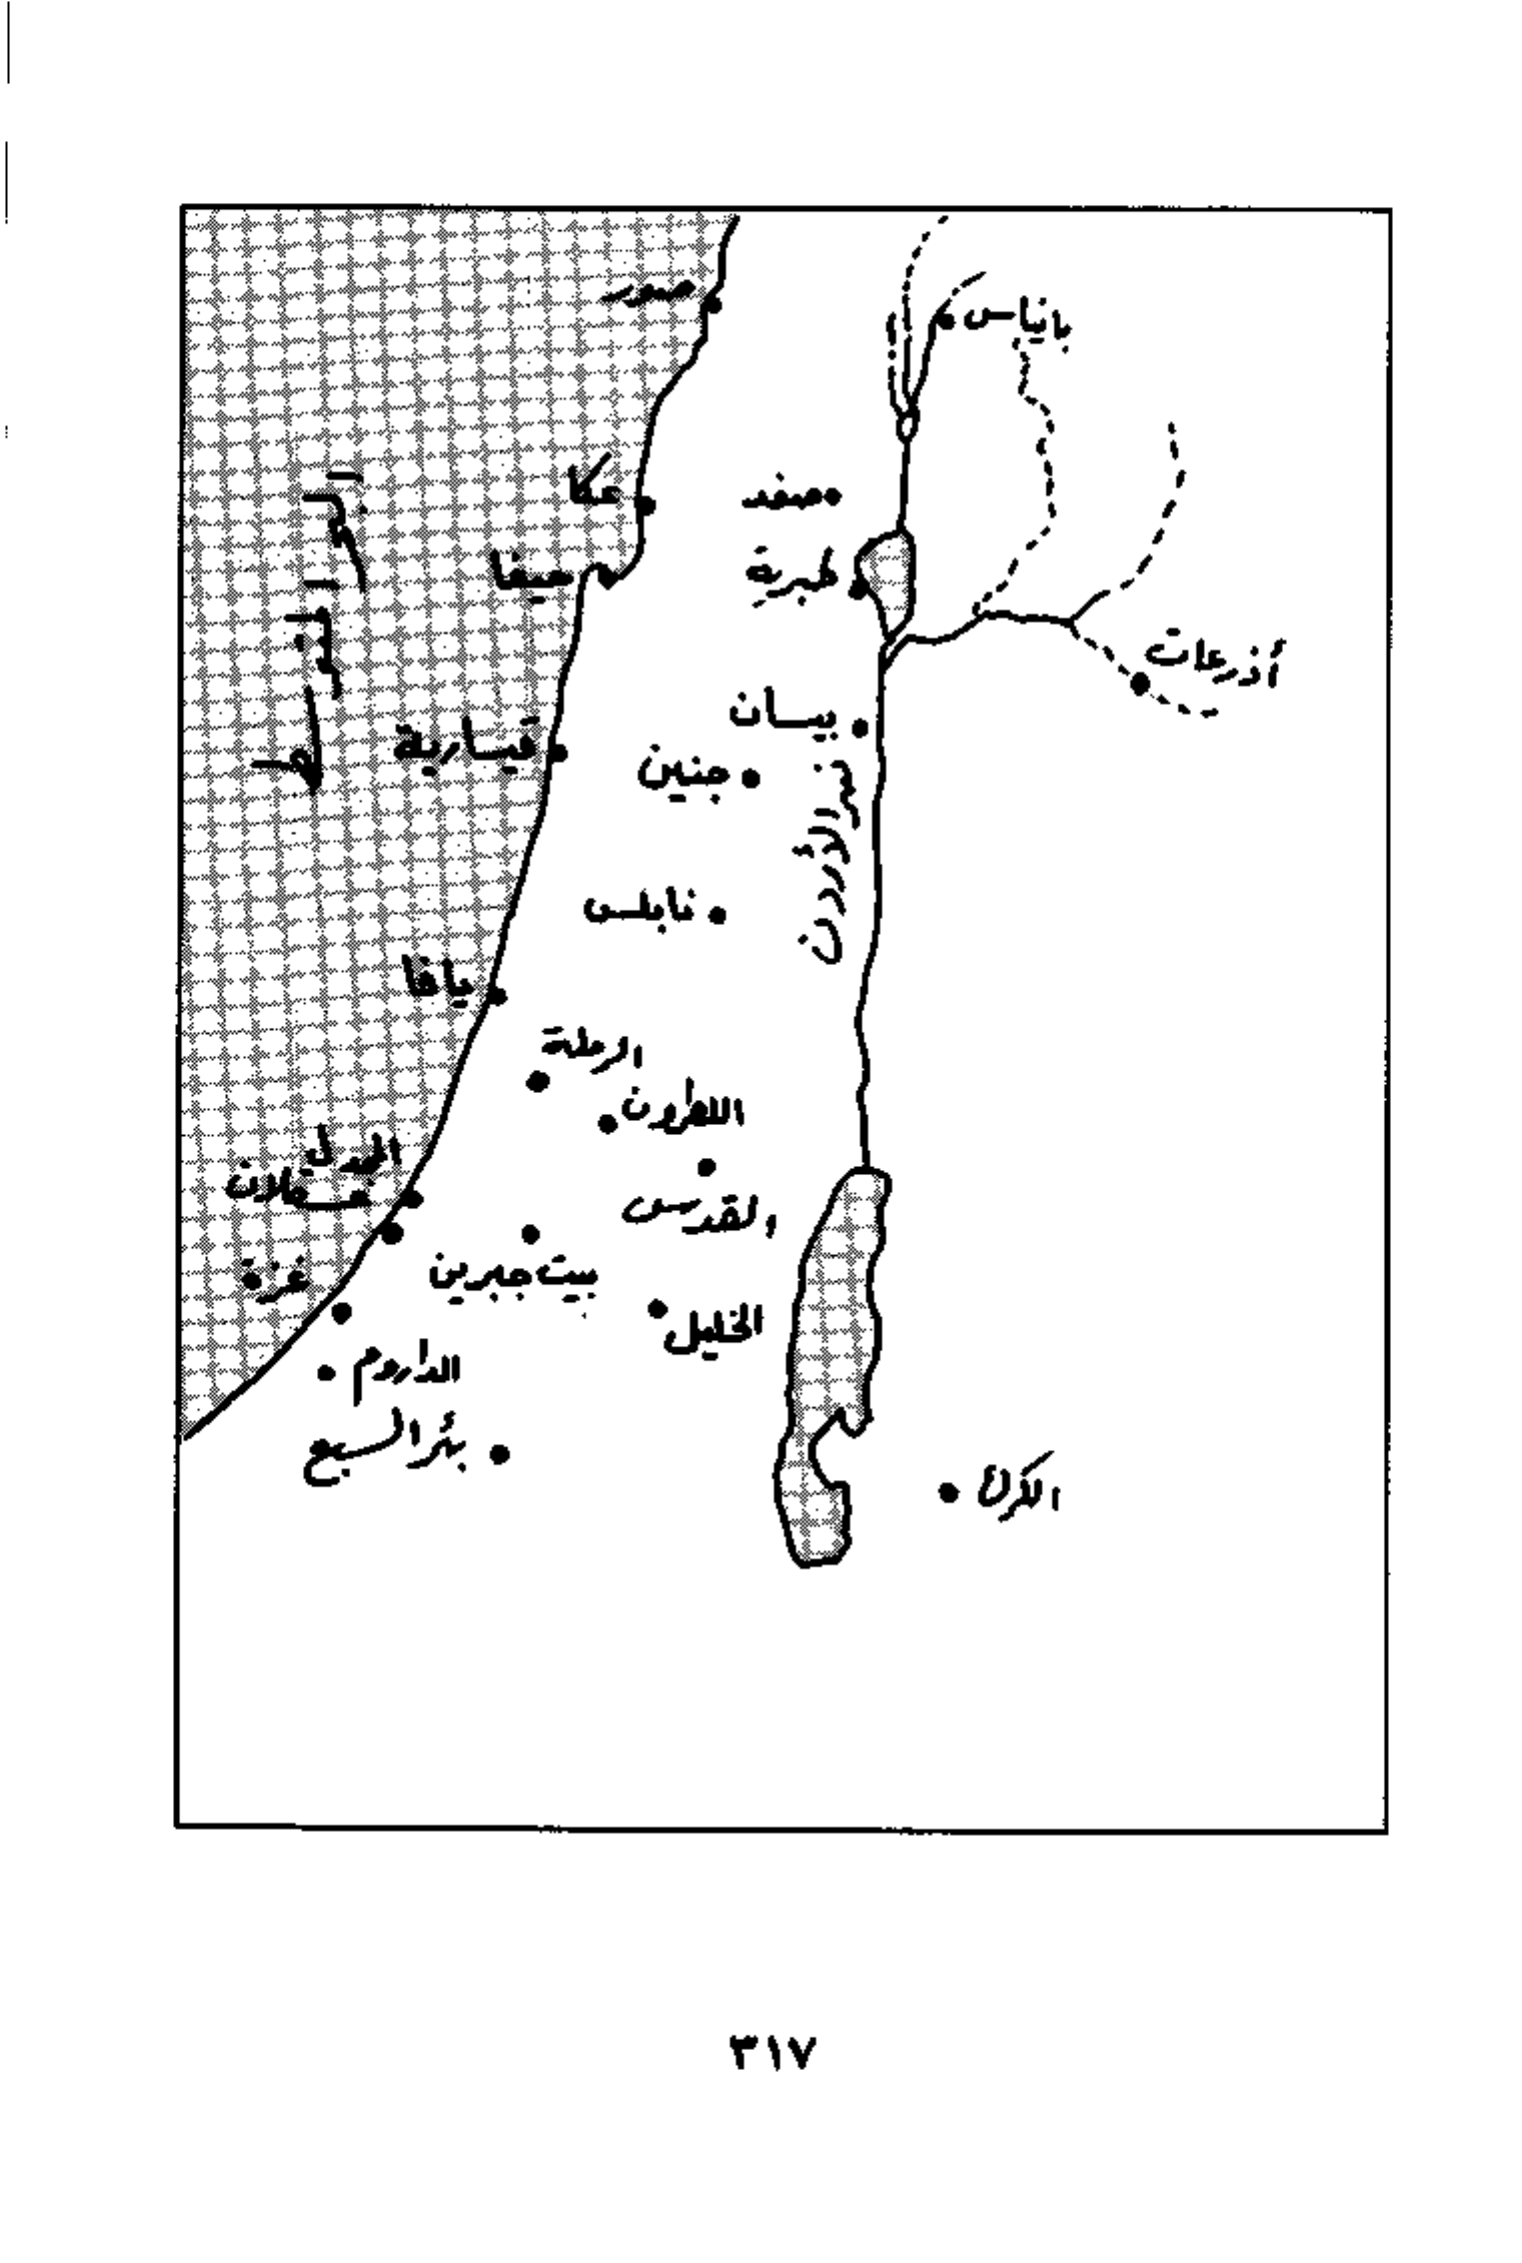 صور
بانياس
عكا
صفد
حيفا
طبرية
أذرعات
بيسان
قيسارية
جنين
نهر الأردن
نابلس
يافا
الرملة
اللطرون
المجدل
عسقلان
القدس
غزة
بيت جبرين
الخليل
الداروم
بئر السبع
الكرك
٣١٧